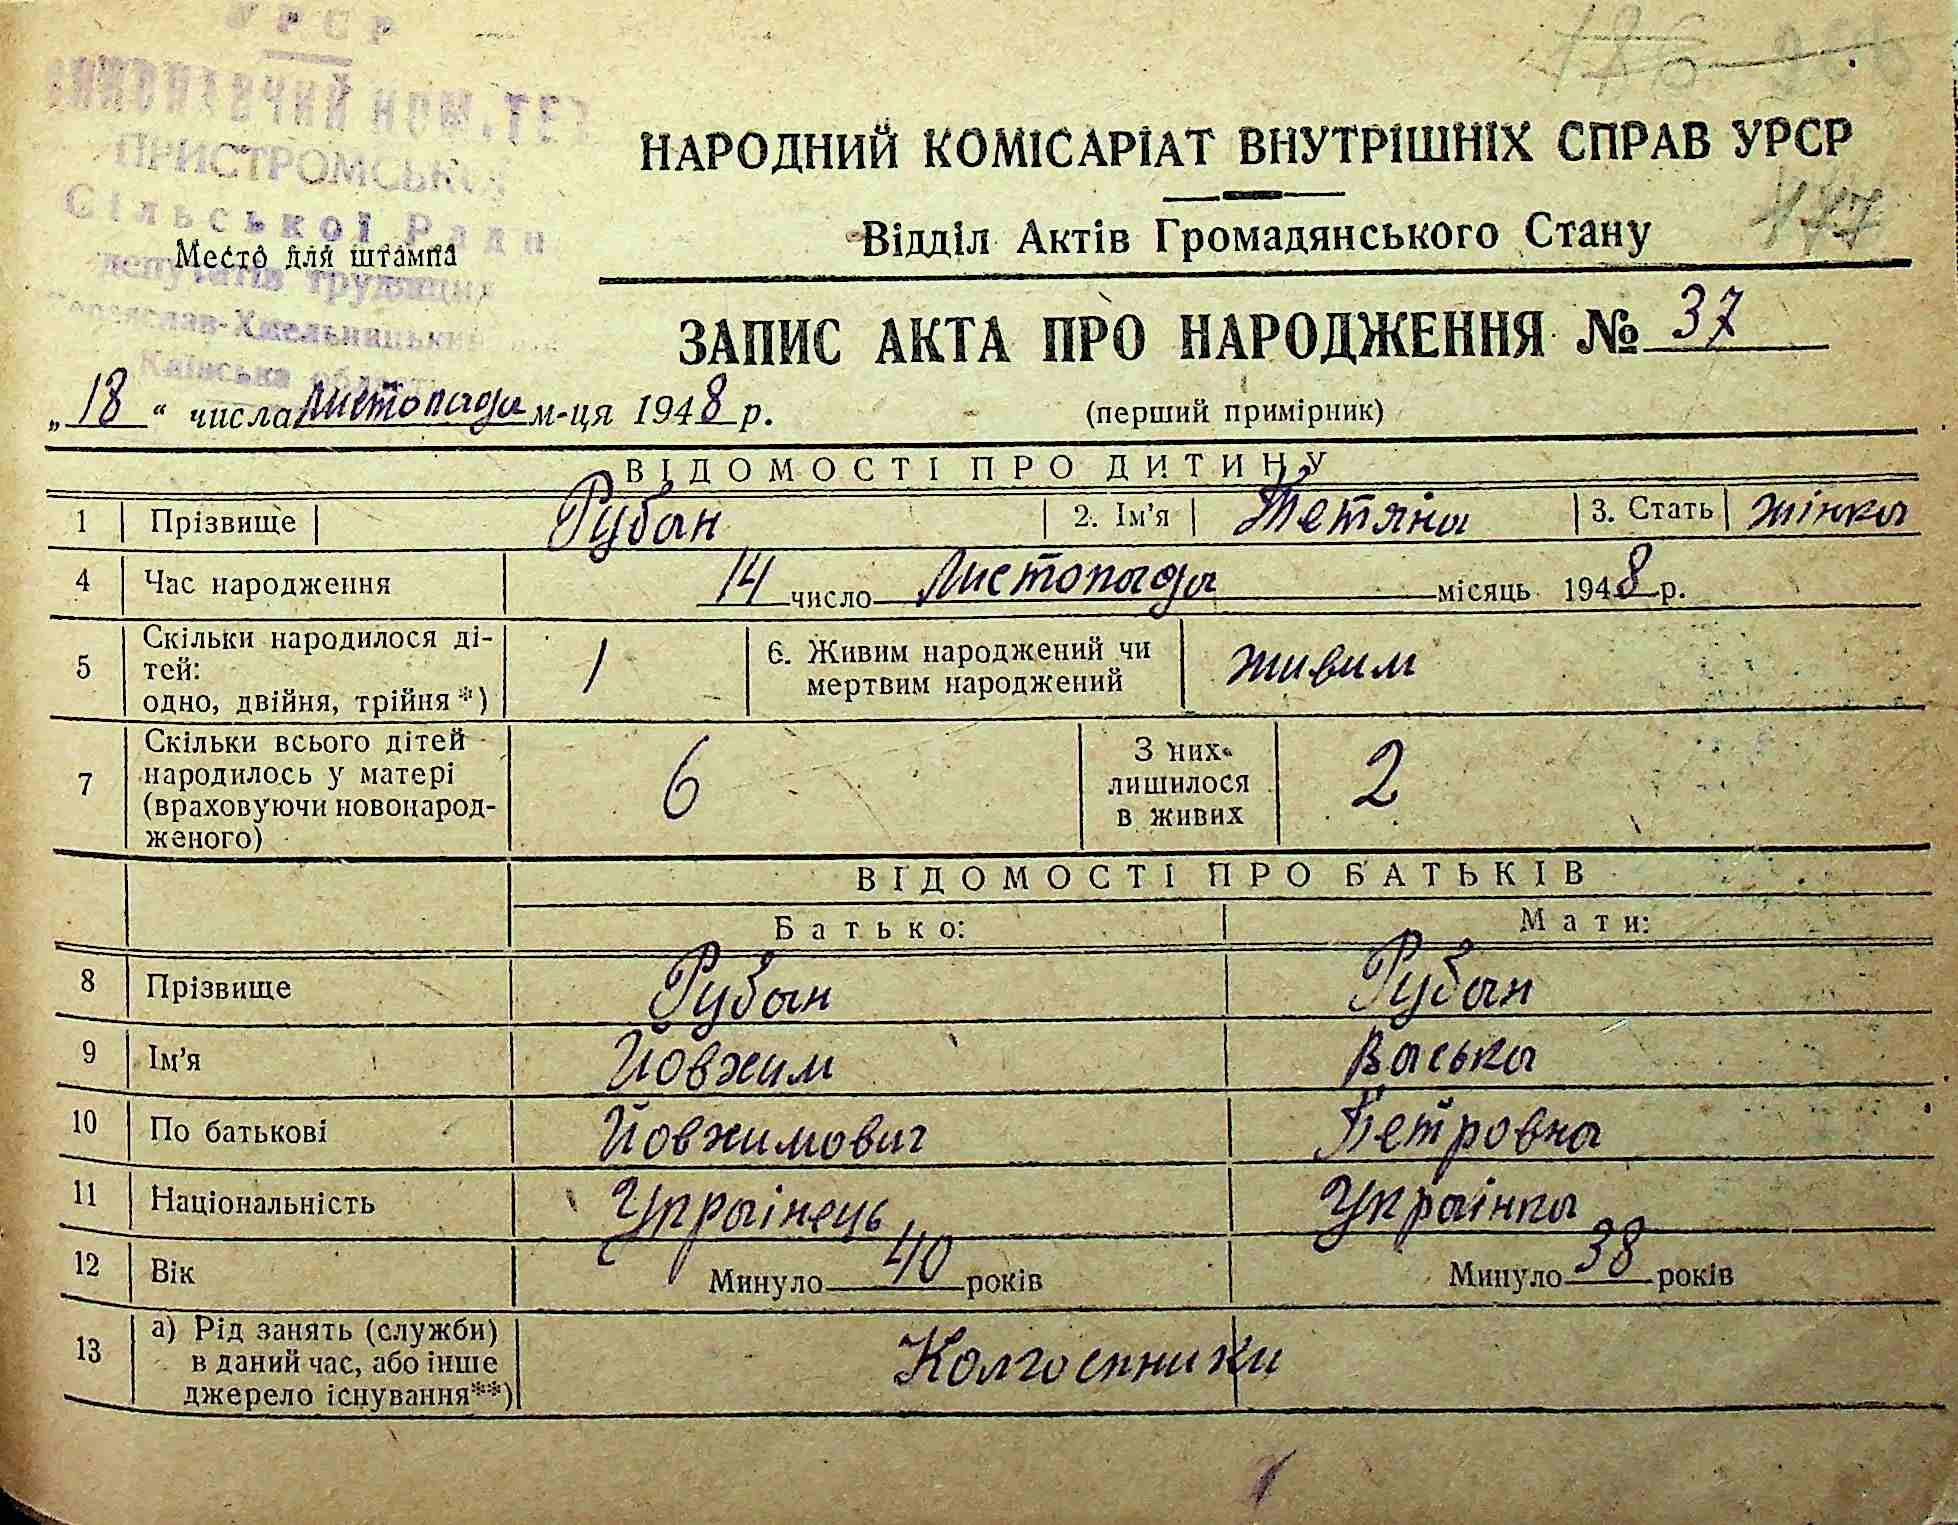 УРСР
ВИКОНАВЧИЙ КОМ.ТЕТ
ПРИСТРОМСЬКОЇ
Сільської Ради
депутатів трудящих
Переяслав-Хмельницький
Київська область
Место для штампа
186 206
НАРОДНИЙ КОМІСАРІАТ ВНУТРІШНІХ СПРАВ УРСР
177
Відділ Актів Громадянського Стану
ЗАПИС АКТА ПРО НАРОДЖЕННЯ № 37
„18“ числа Листопада м-ця 1948 р. (перший примірник)
ВІДОМОСТІ ПРО ДИТИНУ
1 Прізвище Рубан 2. Ім'я Тетяна 3. Стать жінка
4 Час народження 14 число Листопада місяць 1948 р.
5 Скільки народилося ді-
тей:
одно, двійня, трійня *) 1 6. Живим народжений чи
мертвим народжений живим
7 Скільки всього дітей
народилось у матері
(враховуючи новонарод-
женого) 6 З них
лишилося
в живих 2
ВІДОМОСТІ ПРО БАТЬКІВ
Батько: Мати:
8 Прізвище Рубан Рубан
9 Ім'я Йовхим Васька
10 По батькові Йовхимович Петровна
11 Національність Українець Українка
12 Вік Минуло 40 років Минуло 38 років
13 а) Рід занять (служби)
в даний час, або інше
джерело існування**) Колгоспники